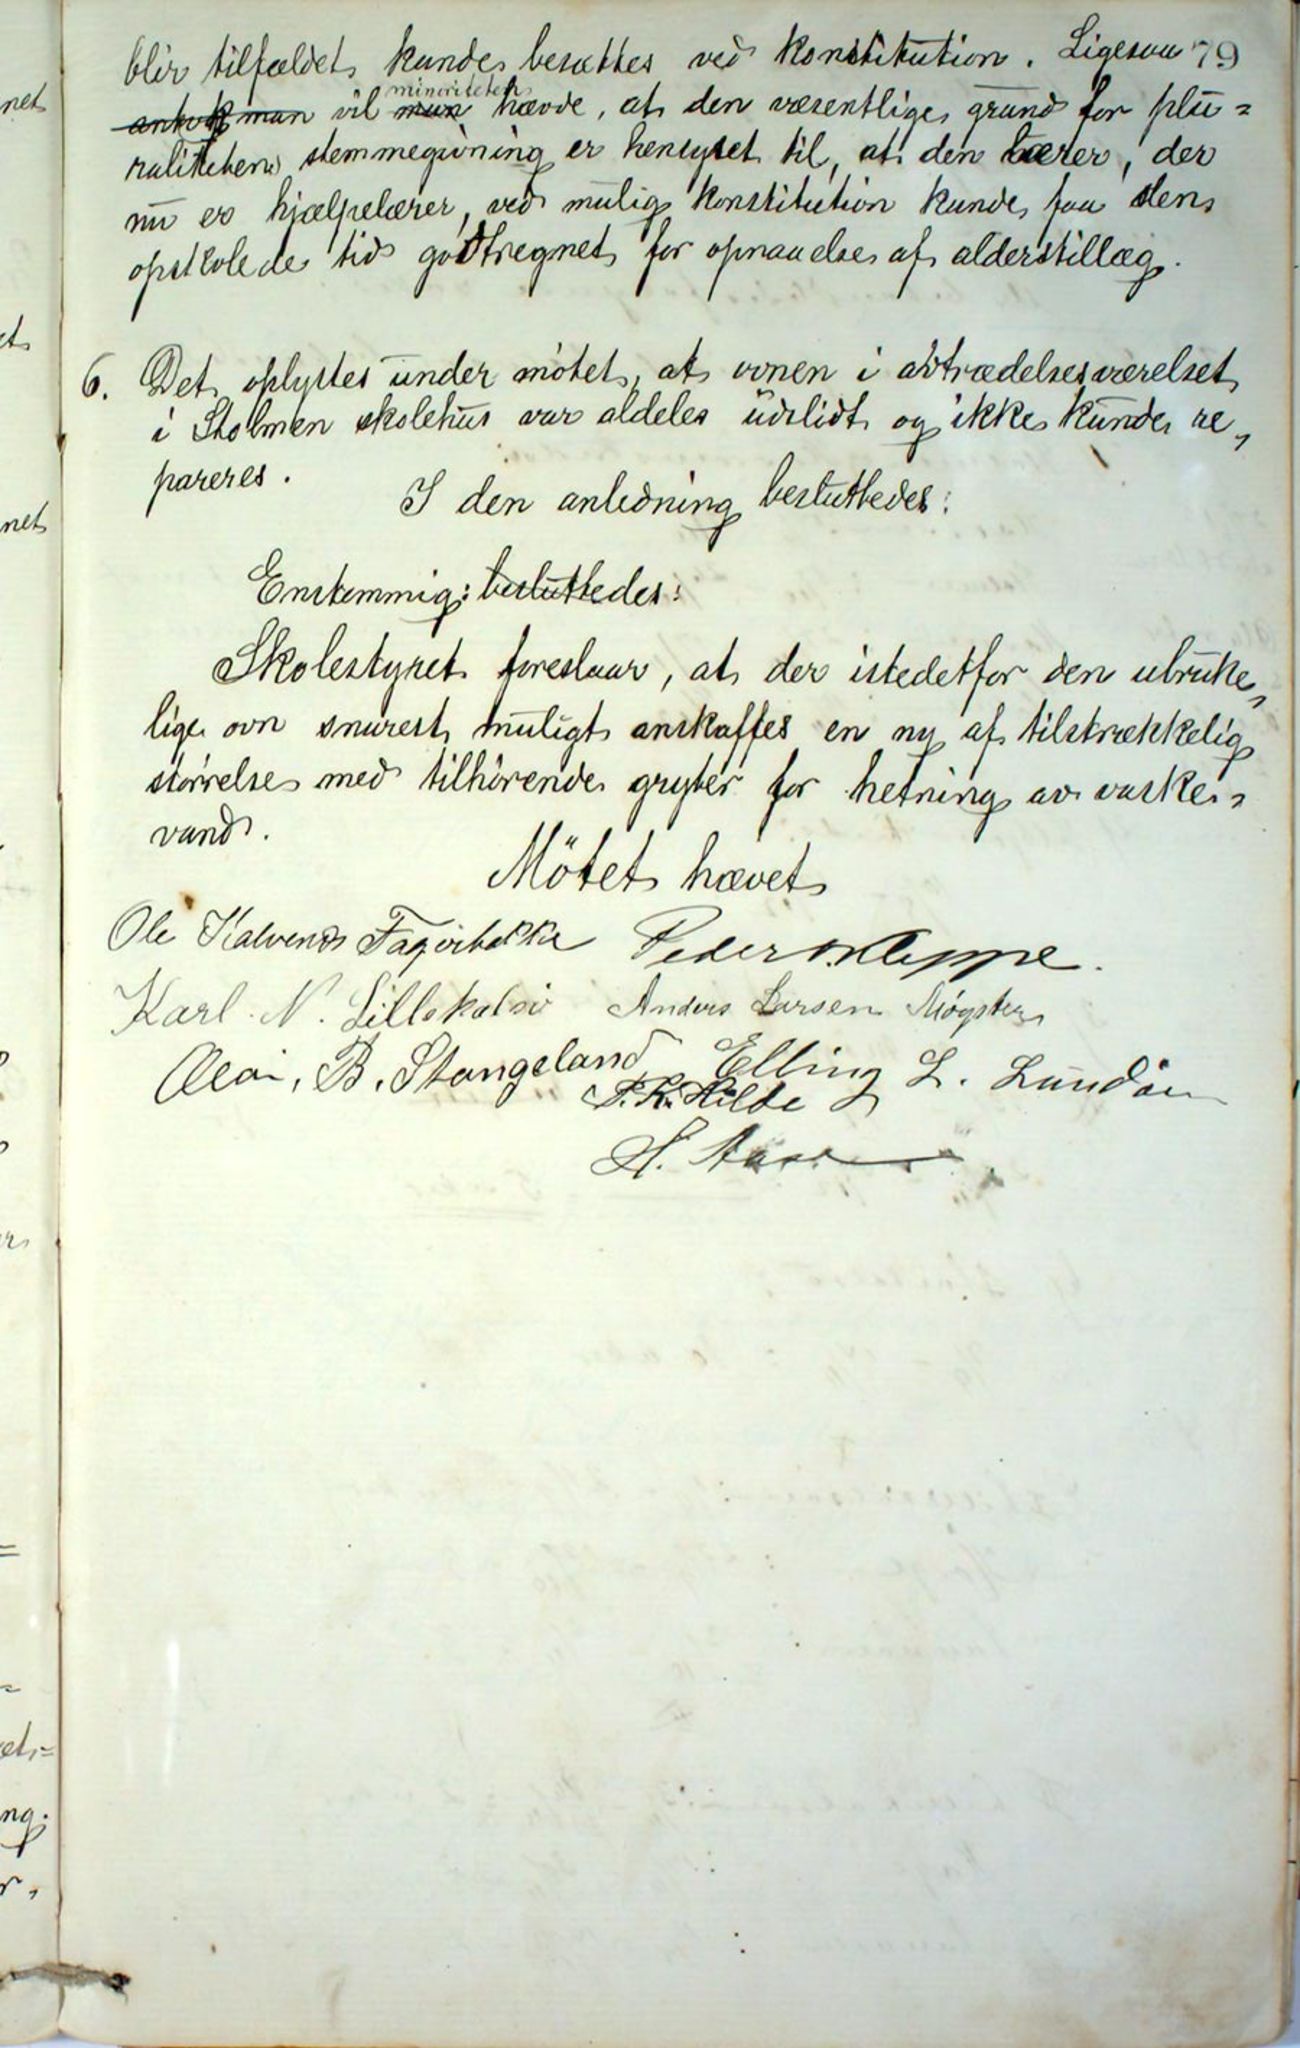 79
blir tilfældet kunde besættes ved konstitution. Ligesaa
man vil minoriteten man hævde, at den væsentlige grund for plu=
ralitetens stemmegivning er hensynet til, at den lærer, der
nu er hjælpelærer, ved mulig konstitution kunde faa den
opskolede tid godtregnet for opnaaelse af alderstillæg.
6. Det oplystes under mötet, at ovnen i avtrædelsesværelset
i Stolmen skolehus var aldeles udslidt og ikke kunde re,
pareres.
I den anledning besluttedes:
Enstemmig: besluttedes:
Skolestyret foreslaar, at der istedetfor den ubruke,
lige ovn snarest muligt anskaffes en ny af tilstrækkelig
störrelse med tilhörende gryter for hetning av vaske,
vand.
Mötet hævet
Ole Kalvenes Fagerbakke Peder O. Kleppe.
Karl N. Lillskalsö Anders Larsen Møgster
B. Stangeland Elling L. Lundöen
Hilde
H. Aase